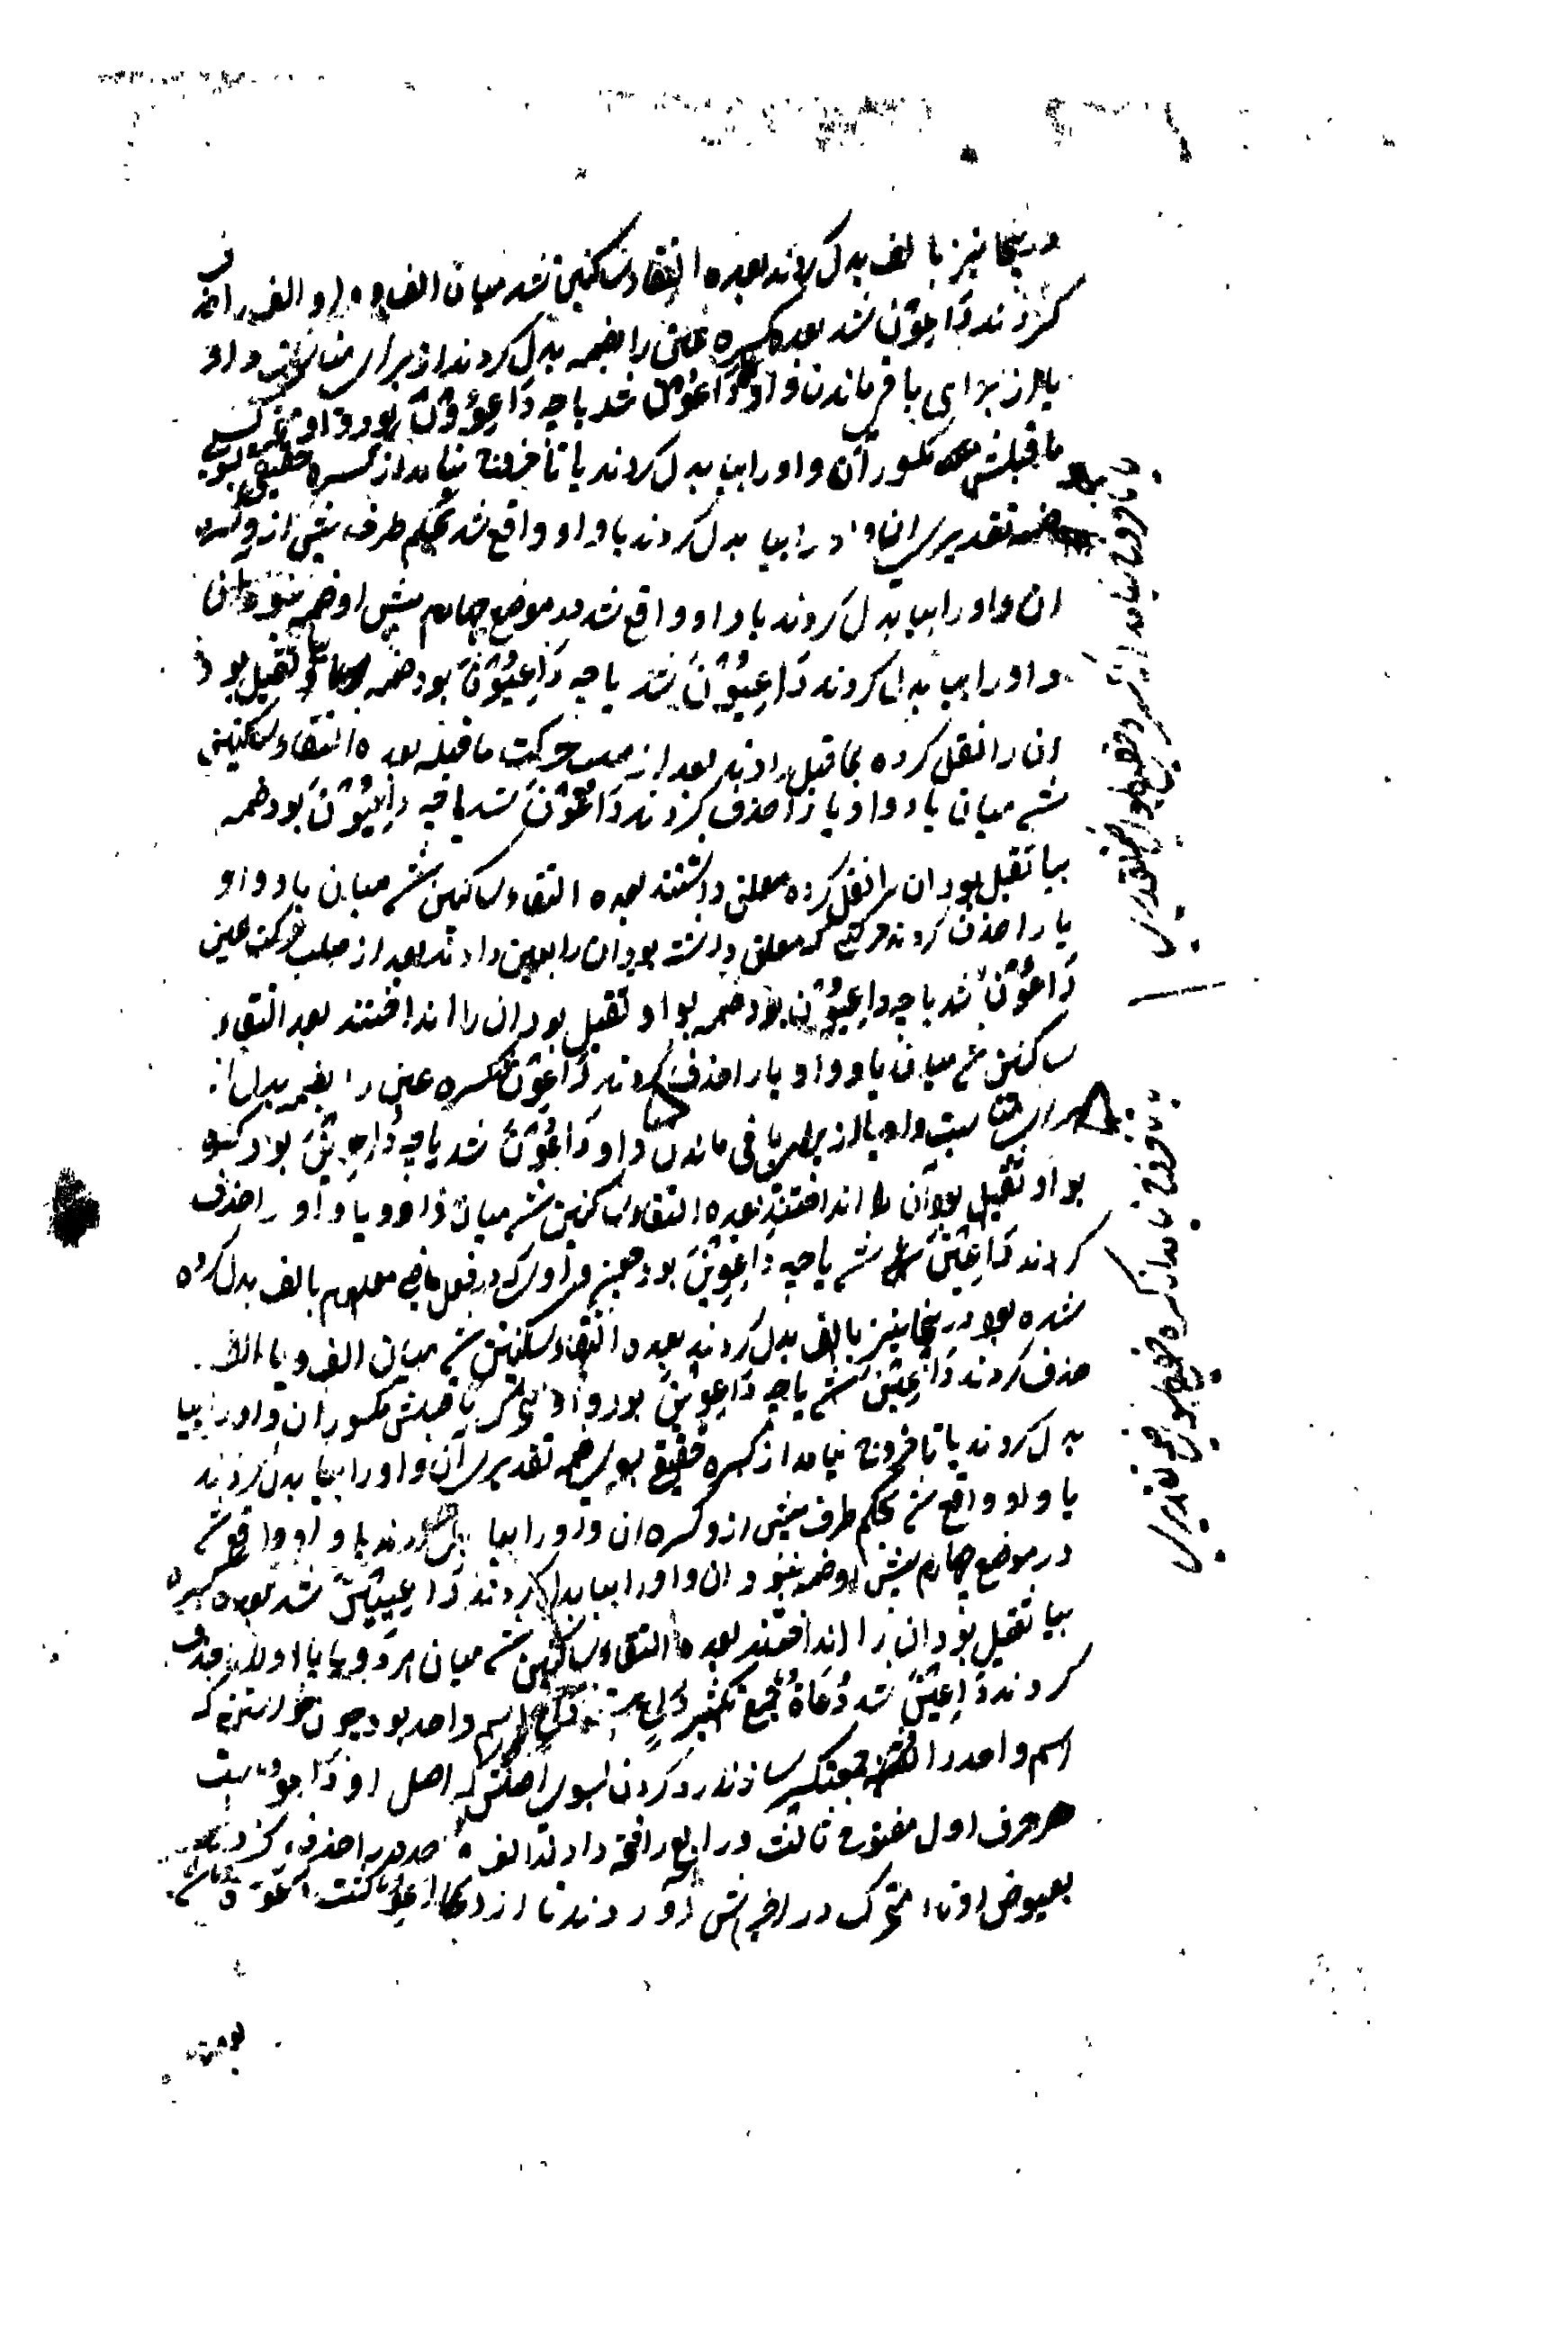 در ینجا نیز بالف بدل کردند بعده التقاء ساکنین شد میان الف و واو الف را حذف
کردند دَاعِوْنَ شد بعده کسره عین را بضمه بدل کردند از برای مناسبت واو
یا از برای باقی ماندن واو دَاعُوْنَ شد یا چه دَاعِوُوْنَ بود واو متحرک
ماقبلش مکسور آن واو را بیا بدل کردند یا تا خروج نیامد از کسره حقیقی بسوی
ضمه تقدیری ان واو را بیا بدل کردند یا واو واقع شد بحکم طرف پیش از و کسره
ان واو را بیا بدل کردند یا واو واقع شد در موضع چهارم پیش او ضمه نبود آن
واو را بیا بدل کردند دَاعِیُوْنَ شد یا چه دَاعِیُوْنَ بود ضمه بیا ثقیل بود
ان را نقل کرده بماقبل دادند بعد از سلب حرکت ماقبله بعده التقاء ساکنین
شد میان یا و واو یا را حذف کردند دَاعُوْنَ شد یا چه دَاعِیُوْنَ بود ضمه
بیا ثقیل بود ان را نقل کرده معلق داشتند بعده التقاء ساکنین شد میان یا و واو
یا را حذف کردند حرکتی که معلق داشته بود ان را بعین دادند بعد از سلب حرکت عین
دَاعُوْنَ شد یا چه دَاعِیُوْنَ بود ضمه بواو ثقیل بود ان را انداختند بعد التقاء
ساکنین شد میان یا و واو یا را حذف کردند دَاعِوْنَ کسره عین را بضمه بدل از
برای مناسبت واو یا از برای باقی ماندن واو دَاعُوْنَ شد یا چه دَاعِوِیْنَ بود کسره
بواو ثقیل بود آن را انداختند بعده التقاء ساکنین شد میان واو و یا واو را حذف
کردند دَاعِیْنَ شد یا چه دَاعِوِیْنَ بود همین واو که در فعل ماضی معلوم بالف بدل کرده
شده بود در ینجا نیز بالف بدل کردند بعده التقاء ساکنین شد میان الف و یا الف
حذف کردند دَاعِیْنَ شد یا چه دَاعِوِیْنَ بود واو متحرک ماقبلش مکسور ان واو را بیا
بدل کردند یا تا خروج نیامد از کسره حقیقی بسوی ضمه تقدیری آن واو را بیا بدل کردند
یا واو واقع شد بحکم طرف پیش از و کسره ان واو را بیا بدل کردند یا واو واقع شد
در موضع چهارم پیش او ضمه نبود ان واو را بیا بدل کردند دَاعِیِیْنَ شد بعده کسره
بیا ثقیل بود ان را انداختند بعده التقاء ساکنین شد میان هر دو یا یا اول را حذف
کردند دَاعِیْنَ شد دُعَاةٌ جمع تکثیر اسم واحد بود چون خواستند که
اسم واحد را جمع تکسیر سازند رد کردن بسوی اصلش که اصل او دَاعِوٌ است
هر حرف اول مفتوح ثالث و رابع را فتحه دادند الف را حذف کردند
بعیوض او تاء متحرک در اخرش آوردند تا از دَاعِوٌ گشت دَعَوَةٌ
تا خروج نیامد از کسره حقیقی بسوی ضمه تقدیری
تا خروج نیامد از کسره حقیقی بسوی ضمه تقدیری